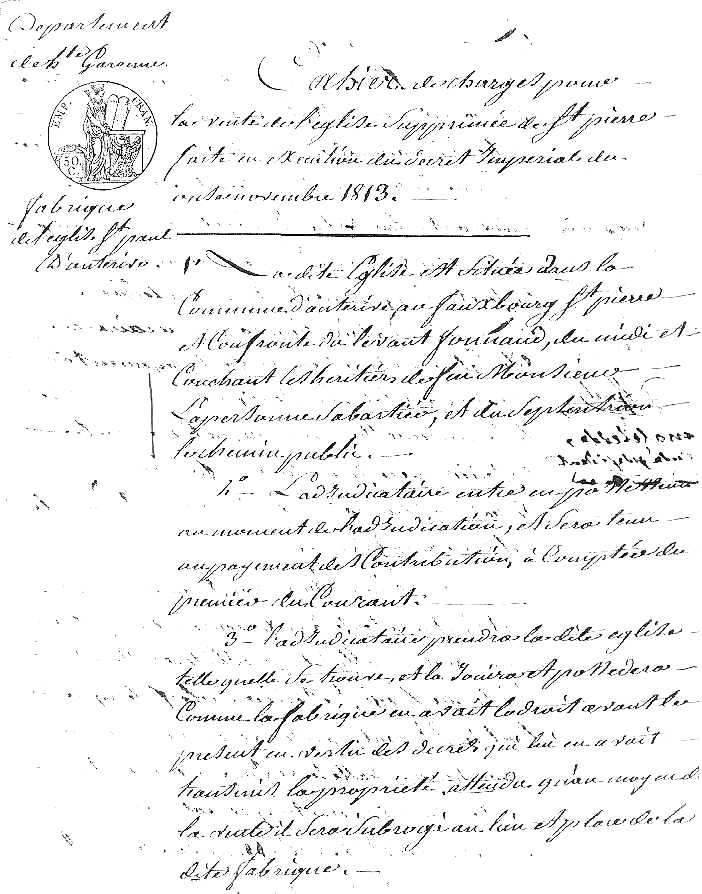 Departement
de hte Garonne.
EMP. FRAN.
50
C.
fabrique
de l'eglise St paul
D'auterive.
Cahier des charges pour
la vente de l'eglise Supprimée de St pierre
faite en execution du decret Imperial du
onze novembre 1813.
1° Ladite Eglise est Située dans la
Commune d'auterive, au fauxbourg St pierre
et Confronte du levant Jonnaud, du midi et
Couchant les heritiers de feu Monsieur
Lapersonne Sabartiée, et du Septentrion
le chemin public.
2° L'adjudicataire entre en possession
au moment de l'adjudication, et Sera tenu
au payement des Contribution, à Compter du
premier du Courant.
3° l'adjudicataire prendra la dite eglise
telle quelle Se trouve, et la Jouira et possedera
Comme la fabrique en avait le droit avant le
present en vertu des decrets qui lui en avait
transmis la propriété, attendu qu'au moyen de
la vente il Sera Subrogé au lieu et place de la
dite fabrique.